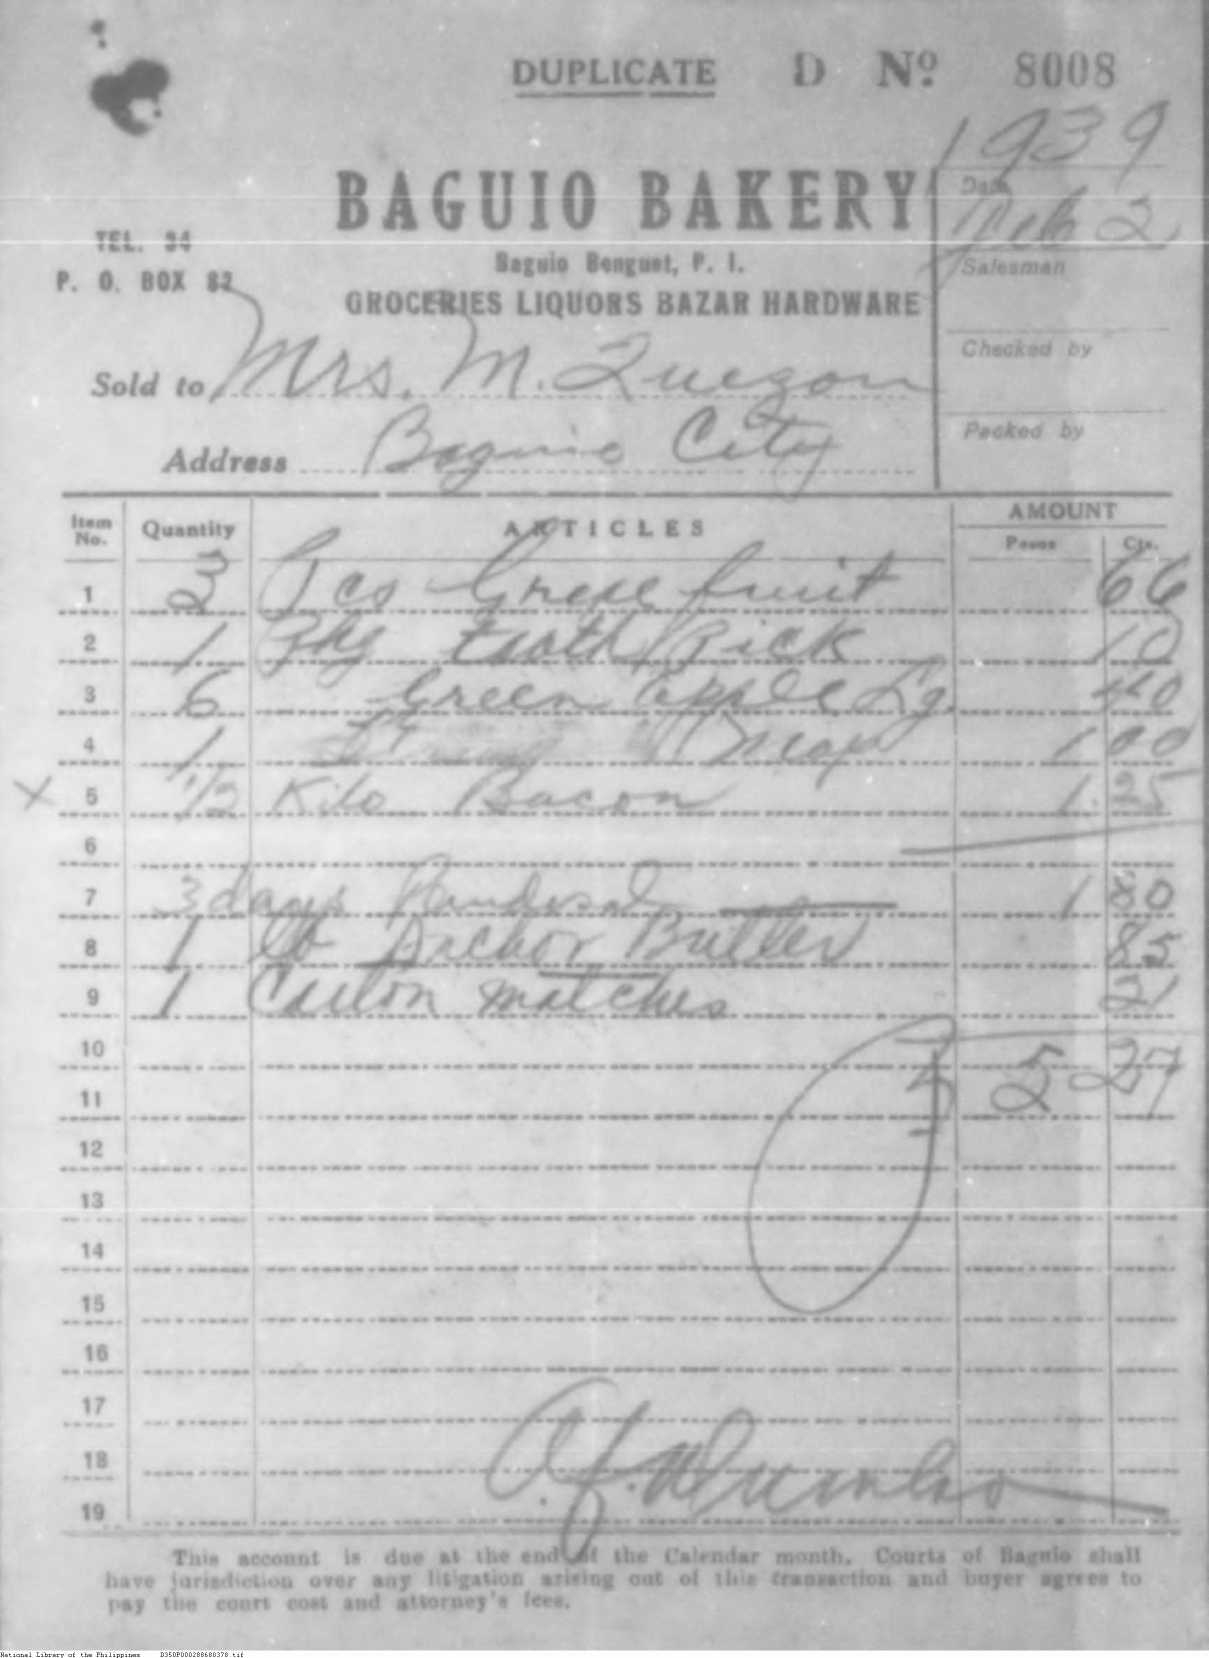 DUPLICATE D Nº 8008
1939
BAGUIO BAKERY
Date
Feb 2
TEL. 34
Baguio Benguet, P. I.
Salesman
P. O. BOX 82
GROCERIES LIQUORS BAZAR HARDWARE
Checked by
Sold to Mrs. M. Quezon
Packed by
Address Baguio City
Item No. Quantity ARTICLES AMOUNT
Pesos Cts.
1 3 Pcs Grape fruit 66
2 1 Pkg tooth Pick 10
3 6 Green apple Lg. 40
4 1 1 00
x 5 1/2 Kilo Bacon 1.25
6
7 3 days Pandesal 1 80
8 1 lb Anchor Butter 85
9 1 Carton matches 21
10 5 27
11
12
13
14
15
16
17
18
19
This account is due at the end of the Calendar month. Courts of Baguio shall
have jurisdiction over any litigation arising out of this transaction and buyer agrees to
pay the court cost and attorney's fees.
National Library of the Philippines D350P000288680378.tif